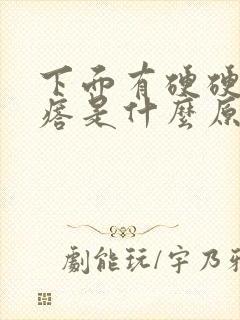 下面有硬硬
痞是什麼原
劇能玩/宇乃雅